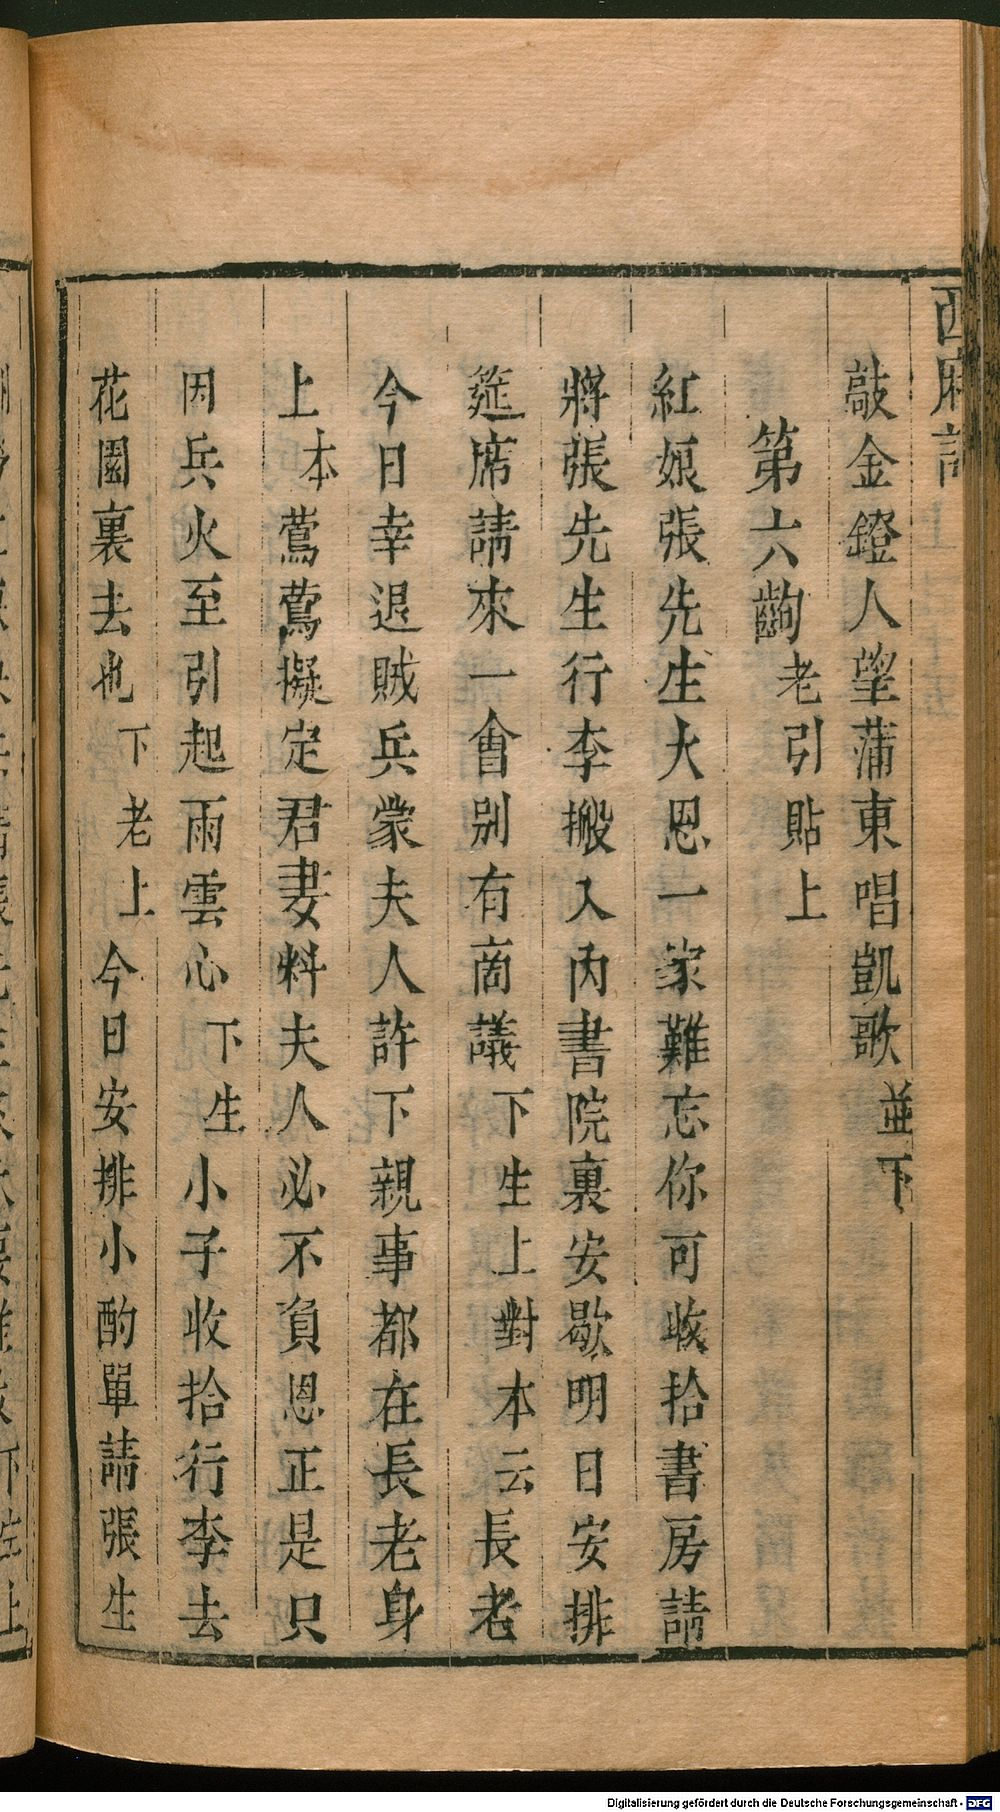 敲金鐙人望蒲東唱凱歌並下
第六齣老引貼上
紅娘張先生大恩一家難忘你可收拾書房請
將張先生行李搬入內書院裏安歇明日安排
筵席請來一會别有啇議下生上對本云長老
今日幸退賊兵蒙夫人許下親事都在長老身
上本鶯鶯擬定君妻料夫人必不負恩正是只
因兵火至引起雨雲心下生小子收拾行李去
花園裏去也下老上今日安排小酌單請張生
Digitalisierung gefördert durch die Deutsche Forschungsgemeinschaft - DFG